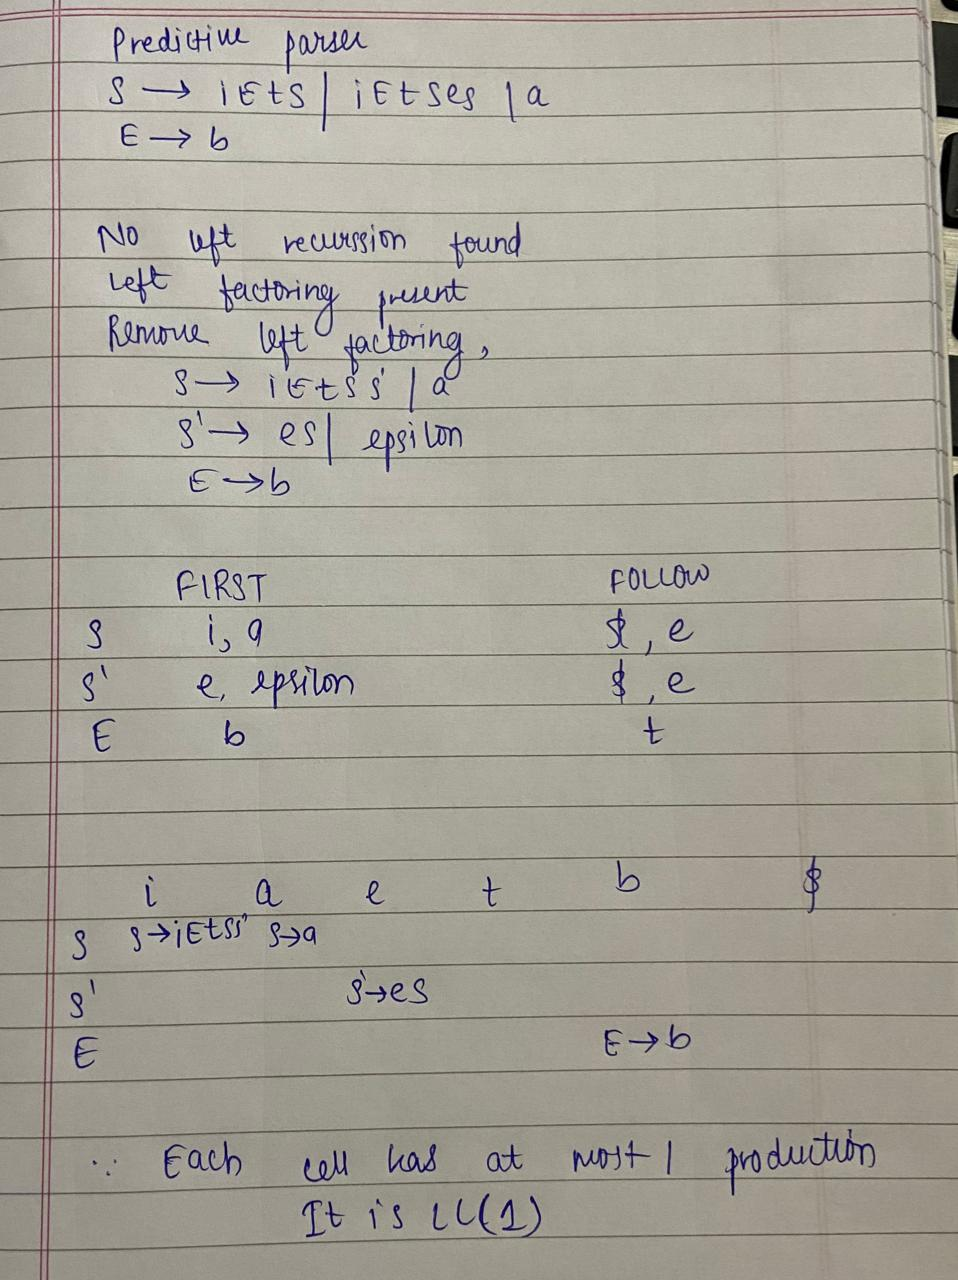 Predictive parser
S → iEtS | iEtSeS | a
E → b
No left recurssion found
Left factoring present
Remove left factoring,
S → iEtSS' | a
S' → eS | epsilon
E → b
FIRST FOLLOW
S i, a $, e
S' e, epsilon $, e
E b t
i a e t b $
S S→iEtSS' S→a
S' S'→eS
E E→b
∵ Each cell has at most 1 production
It is LL(1)